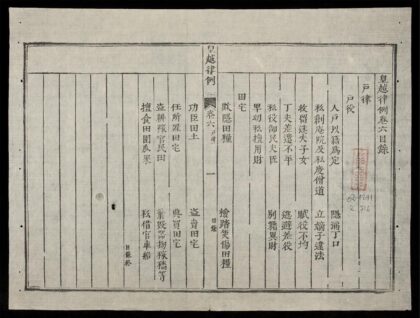 皇越律例卷六目錄
戶律
戶役
人戶以籍為定 隱漏丁口
私創庵院及私度僧道 立嫡子違法
收留迷失子女 賦役不均
丁夫差遣不平 逃避差役
私役部民夫匠 別籍異財
卑幼私擅用財
田宅
欺隱田糧 檢踏災傷田糧
功臣田土 盜賣田宅
任所置田宅 典買田宅
盜耕種官民田 棄毀器物稼穡等
擅食田園瓜果 私借官車船
目錄終
皇越律例
卷六
目錄
一